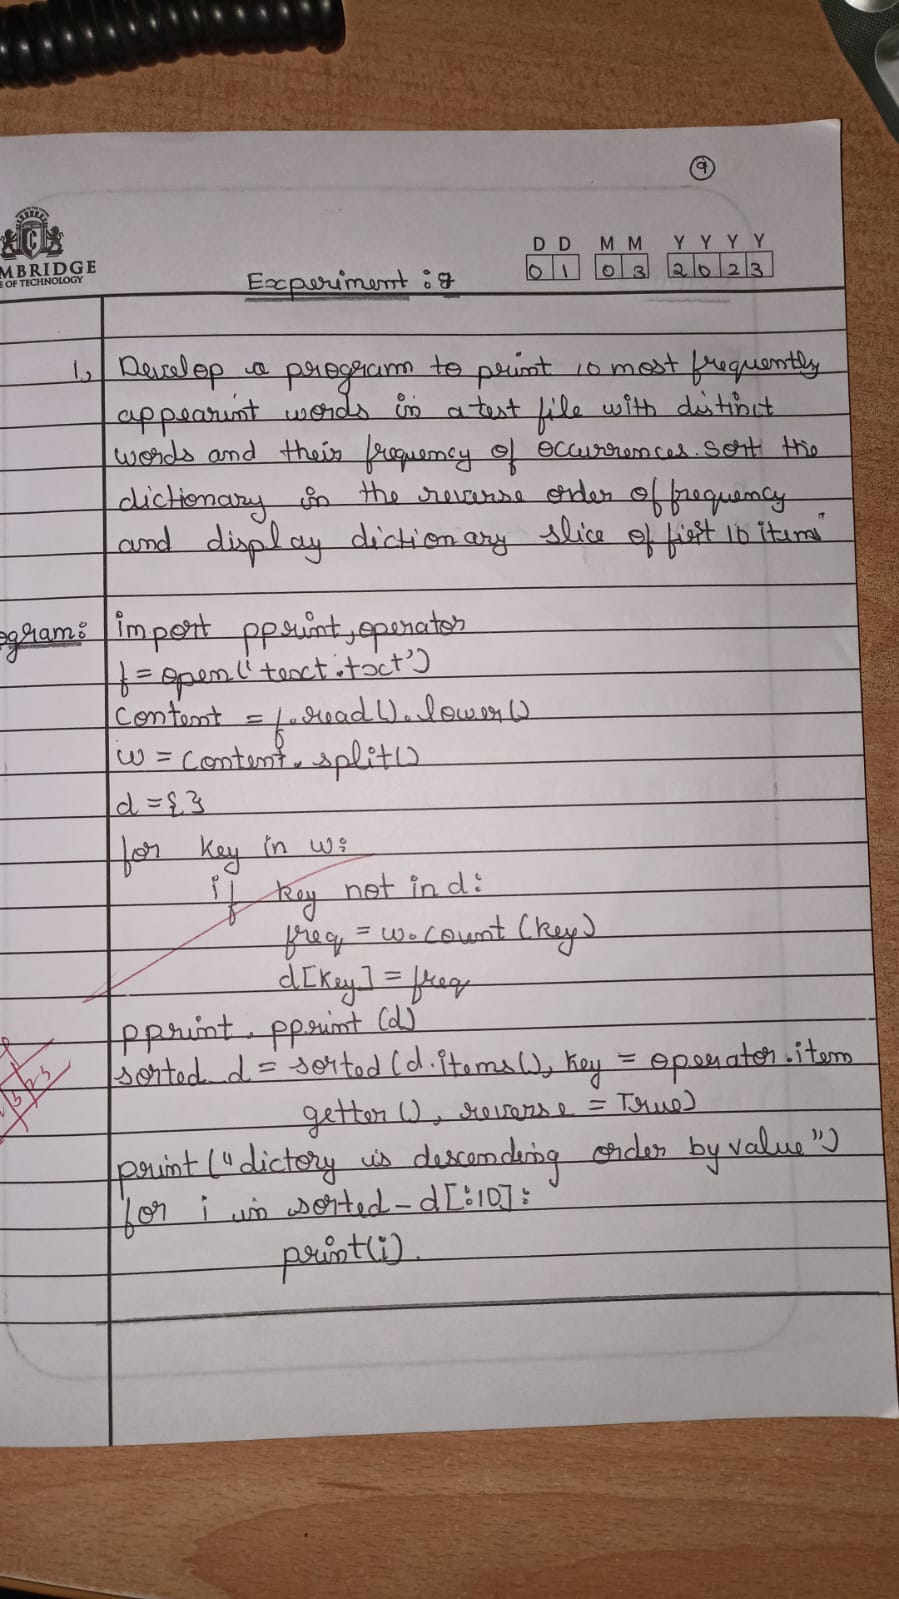 9
MBRIDGE
E OF TECHNOLOGY
D D M M Y Y Y Y
01 03 2023
Experiment :
1, Develop a program to print 10 most frequently
appearint words in a text file with distinct
words and their frequency of occurrences. Sort the
dictionary in the reverse order of frequency
and display dictionary slice of first 10 items"
ogram: import pprint, operator
f = open('text.txt')
Content = f.read().lower()
w = Content.split()
d = {}
for key in w:
if key not in d:
freq = w.count(key)
d[key] = freq
pprint.pprint(d)
sorted_d = sorted(d.items(), key = operator.item
getter(), reverse = True)
print("dictory is descending order by value")
for i in sorted_d[:10]:
print(i).